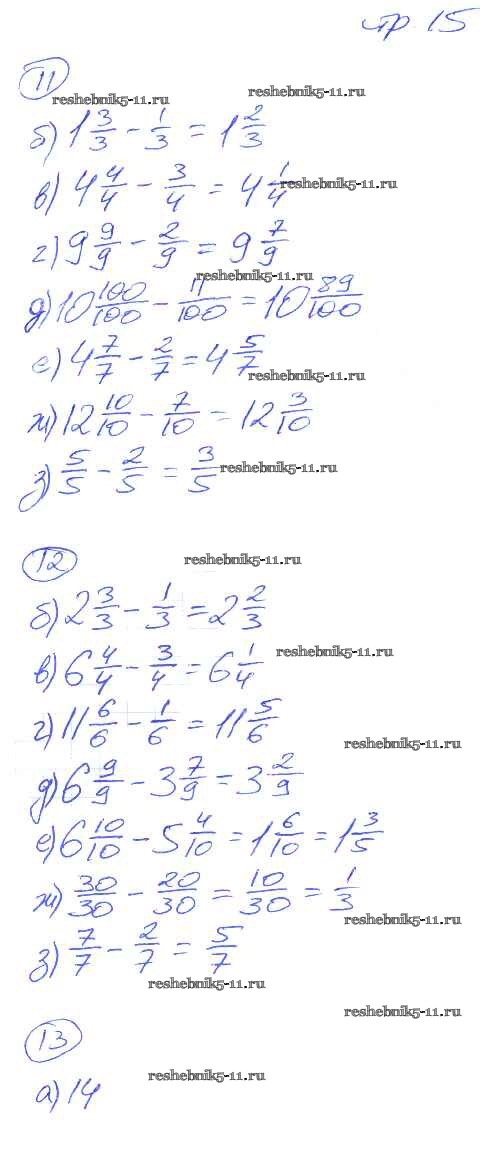 стр. 15
11
reshebnik5-11.ru
reshebnik5-11.ru
б) 1 3/3 - 1/3 = 1 2/3
в) 4 4/4 - 3/4 = 4 1/4
reshebnik5-11.ru
г) 9 9/9 - 2/9 = 9 7/9
reshebnik5-11.ru
д) 10 100/100 - 11/100 = 10 89/100
е) 4 7/7 - 2/7 = 4 5/7
reshebnik5-11.ru
ж) 12 10/10 - 7/10 = 12 3/10
з) 5/5 - 2/5 = 3/5
reshebnik5-11.ru
12
reshebnik5-11.ru
б) 2 3/3 - 1/3 = 2 2/3
в) 6 4/4 - 3/4 = 6 1/4
reshebnik5-11.ru
г) 11 6/6 - 1/6 = 11 5/6
reshebnik5-11.ru
д) 6 9/9 - 3 7/9 = 3 2/9
е) 6 10/10 - 5 4/10 = 1 6/10 = 1 3/5
ж) 30/30 - 20/30 = 10/30 = 1/3
reshebnik5-11.ru
з) 7/7 - 2/7 = 5/7
reshebnik5-11.ru
reshebnik5-11.ru
13
reshebnik5-11.ru
а) 14